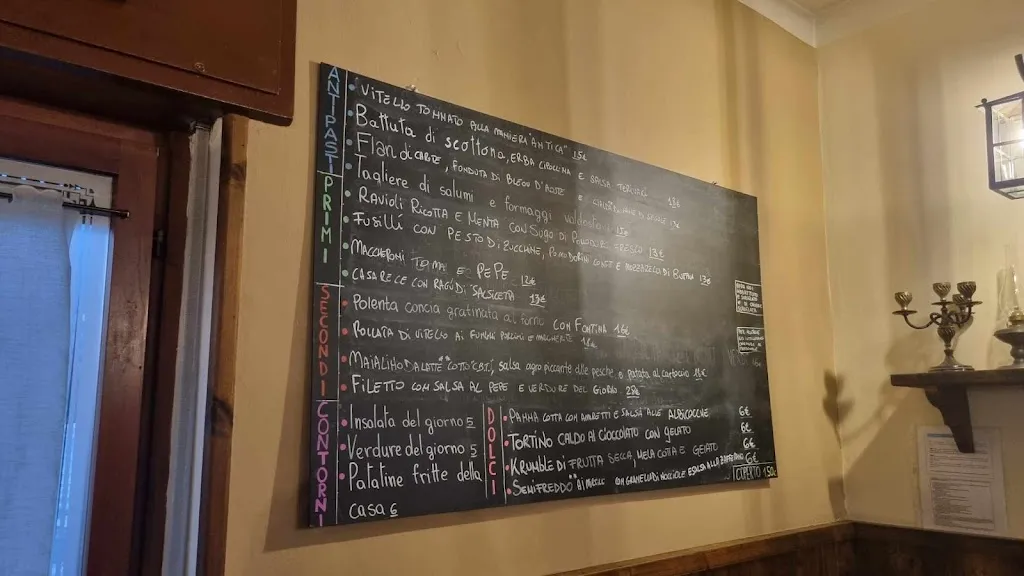 ANTIPASTI
VITELLO TONNATO ALLA MANIERA "ANTICA" 15€
Battuta di scottona, ERBA CIPOLLINA E SALSA 13€
Flan di FONDUTA DI BLEU D'AOSTE
Tagliere di salumi e formaggi
PRIMI
RAVIOLI RICOTTA E MENTA CON SUGO DI FRESCO 13€
FUSILLI CON PESTO DI ZUCCHINE, E MOZZARELLA DI BUFALA 13€
MACCHERONI E PEPE 12€
CASARECCE CON RAGÙ DI SALSICCIA 13€
SECONDI
Polenta concia gratinata al forno CON FONTINA 16€
ROLLATA DI VITELLO AI FUNGHI
MAIALINO DA LATTE salsa agro piccante alle pesche e patata al cartoccio
FILETTO CON SALSA AL PEPE E VERDURE DEL GIORNO
CONTORNI
Insalata del giorno 5
Verdure del giorno 5
Patatine fritte della
casa 6
DOLCI
PANNA COTTA CON AMARETTI E SALSA ALLE ALBICOCCHE 6€
TORTINO CALDO AL CIOCCOLATO CON GELATO 6€
KRUMBLE DI FRUTTA SECCA, MELA COTTA E GELATO 6€
SEMIFREDDO AL MIELE CON GRANELLA DI NOCCIOLE E SALSA ALLO ZAFFERANO 6€
COPERTO 1.50€